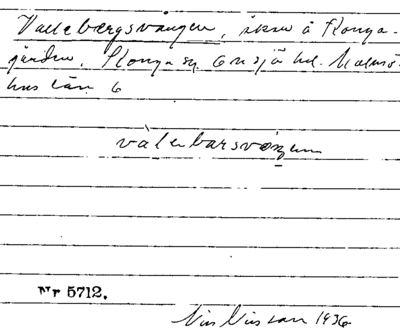 Vallebergsvången, åker å Konga-
gården, Konga sn Onsjö hd. Malmö-
hus län 6
vàlebarsvåŋen
Nr 5712.
Nils Nilsson 1936